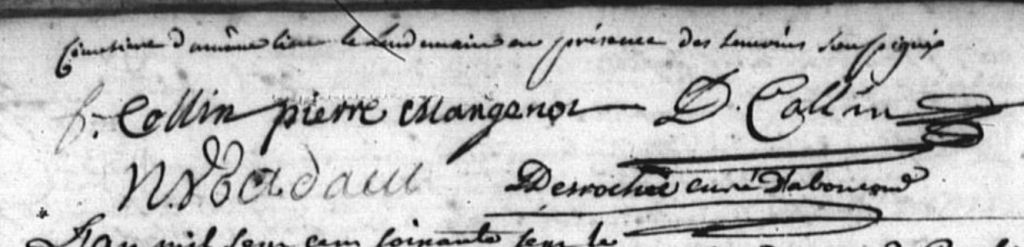 Cimetiere du même lieu le lendemain en présence des temoins soussignés
f. Collin pierre Mangenot D. Collin
N. Desrochee curé
L'an mil sept cent soixante sept le